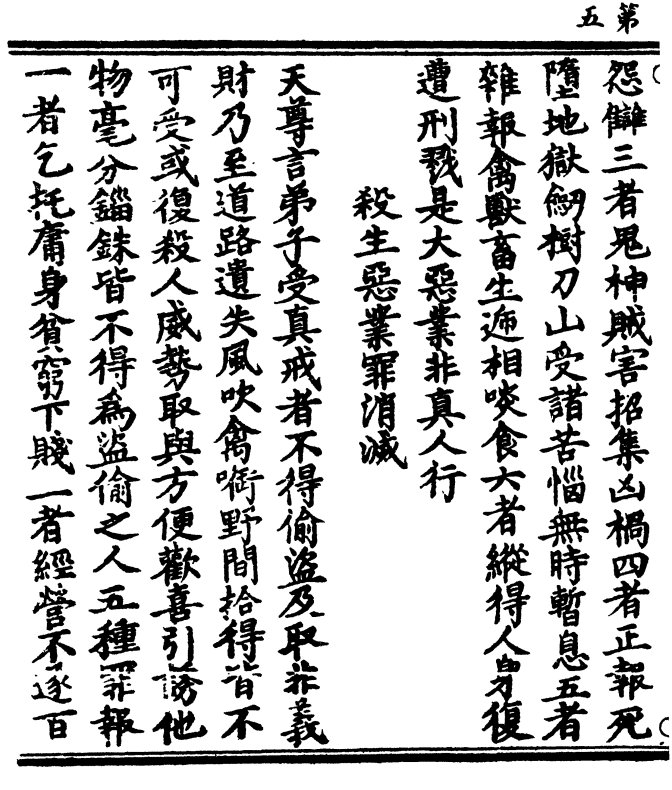 第五
怨讎三者鬼神賊害招集凶禍四者正報死
墮地獄劒樹刀山受諸苦惱無時暫息五者
雜報禽獸畜生逓相啖食六者縱得人身復
遭刑戮是大惡業非真人行
殺生惡業罪消滅
天尊言弟子受真戒者不得偷盜及取非義
財乃至道路遺失風吹禽㘅野間拾得皆不
可受或復殺人威勢取與方便歡喜引誘他
物毫分錙銖皆不得為盜偷之人五種罪報
一者乞托庸身貧窮下賤一者經營不遂百